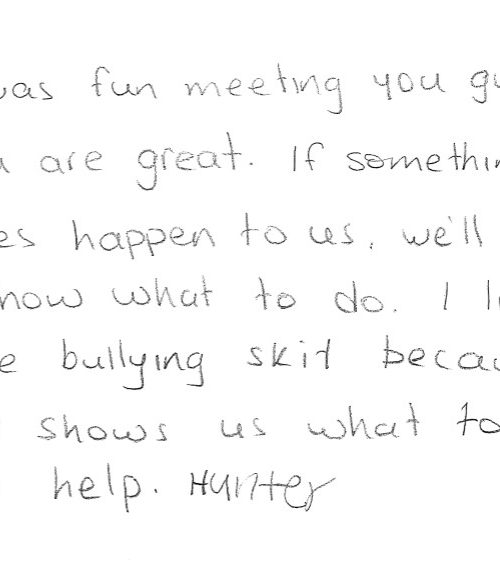 was fun meeting you gu
are great. If somethin
es happen to us, we'll
now what to do. I l
e bullying skit becau
shows us what to
help. Hunter